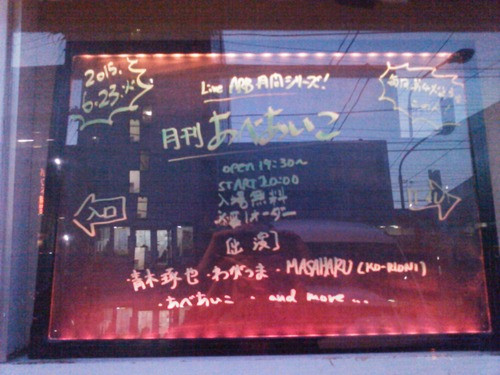 2015.
6.23.火
Live ARB 月間シリーズ!
月刊 あべあいこ
open 19:30~
START 20:00
入場無料
オーダー
入口
[出演]
・青木琢也・わがつま・MASAHARU (KO-RIONI)
・あべあいこ ・ and more...